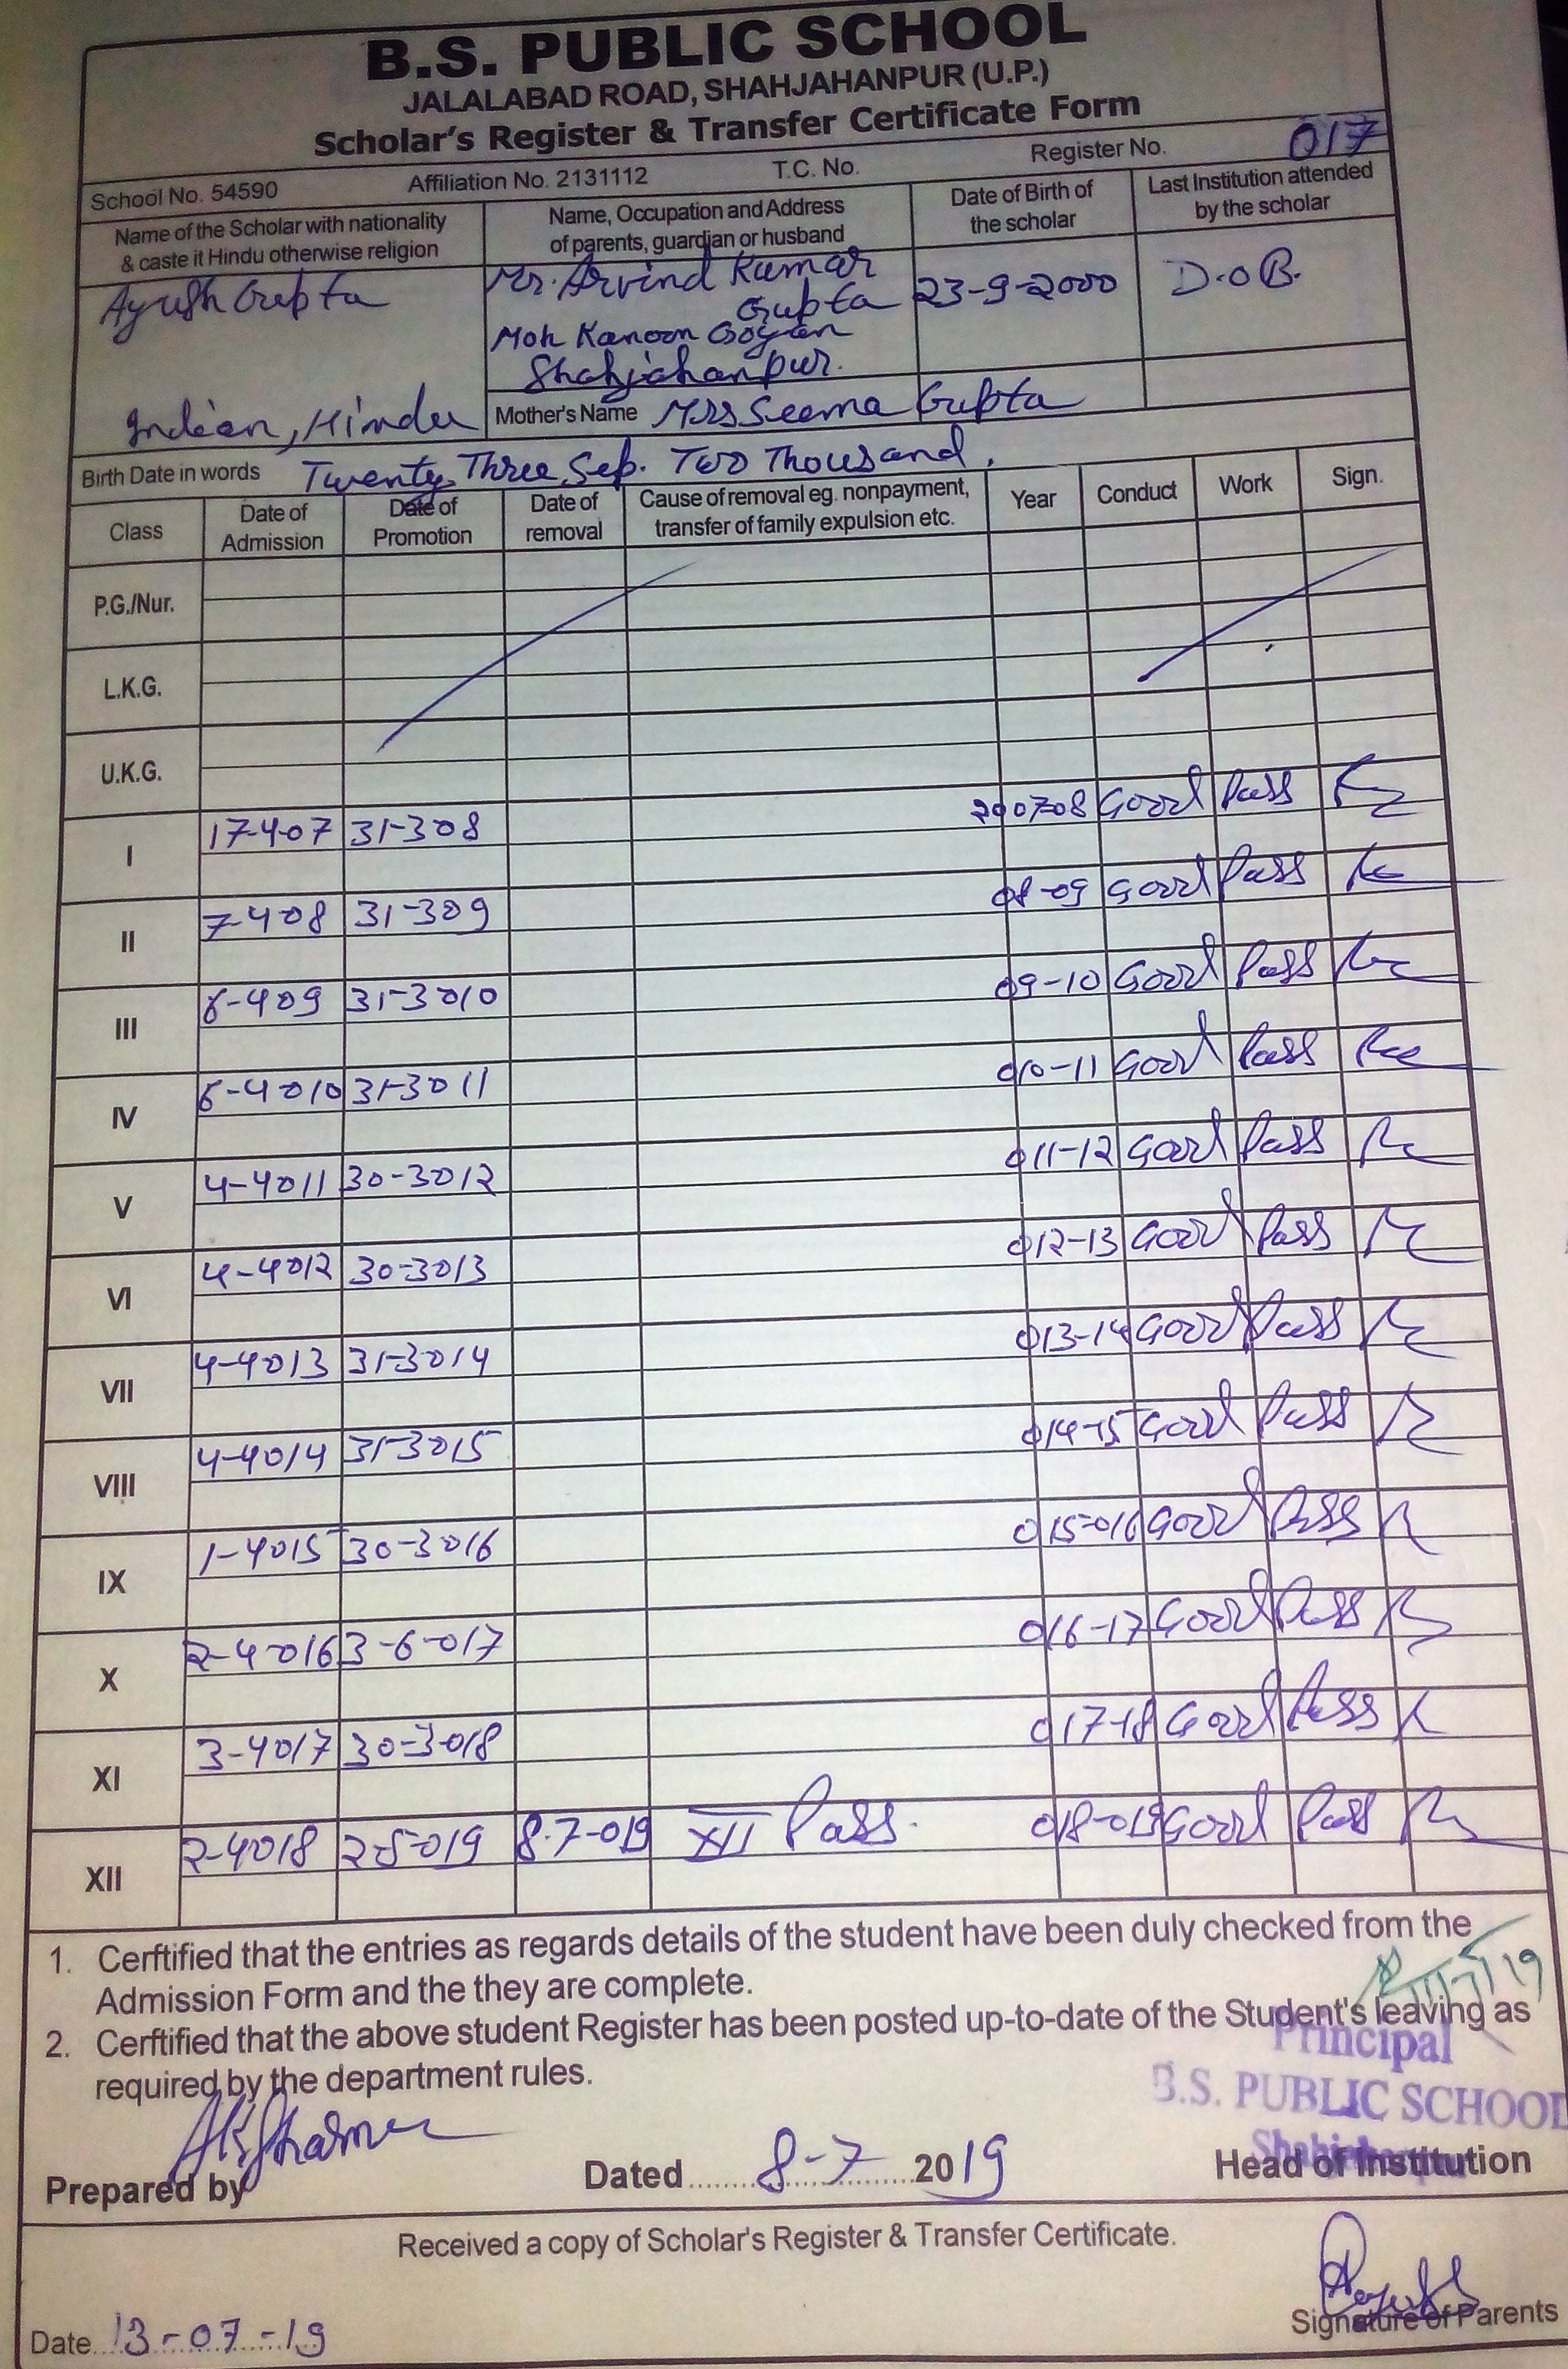 B.S. PUBLIC SCHOOL
JALALABAD ROAD, SHAHJAHANPUR (U.P.)
Scholar's Register & Transfer Certificate Form
School No. 54590 Affiliation No. 2131112 T.C. No. Register No. 017
Name of the Scholar with nationality & caste it Hindu otherwise religion
Name, Occupation and Address of parents, guardian or husband
Date of Birth of the scholar
Last Institution attended by the scholar
Ayush Gupta
Indian, Hindu
Mr. Arvind Kumar
Gupta
Moh Kanoon Goyan
Shahjahanpur.
23-9-2000
D.O.B.
Mother's Name Mrs Seema Gupta
Birth Date in words Twenty Three Sep. Two Thousand.
Class Date of Admission Date of Promotion Date of removal Cause of removal eg. nonpayment, transfer of family expulsion etc. Year Conduct Work Sign.
P.G./Nur.
L.K.G.
U.K.G.
I 17-407 31-308 200708 Good Pass
II 7-408 31-309 08-09 Good Pass
III 6-409 31-3010 09-10 Good Pass
IV 6-4010 31-3011 010-11 Good Pass
V 4-4011 30-3012 011-12 Good Pass
VI 4-4012 30-3013 012-13 Good Pass
VII 4-4013 31-3014 013-14 Good Pass
VIII 4-4014 31-3015 014-15 Good Pass
IX 1-4015 30-3016 015-016 Good Pass
X 2-4-016 3-6-017 016-17 Good Pass
XI 3-4017 30-3-018 017-18 Good Pass
XII 2-4018 2-5-019 8.7-019 XII Pass. 018-019 Good Pass
1. Cerftified that the entries as regards details of the student have been duly checked from the
Admission Form and the they are complete.
2. Cerftified that the above student Register has been posted up-to-date of the Student's leaving as
required by the department rules.
Principal
B.S. PUBLIC SCHOOL
Prepared by Dated 8-7 2019 Head of Institution
Received a copy of Scholar's Register & Transfer Certificate.
Date 13-07-19 Signature of Parents